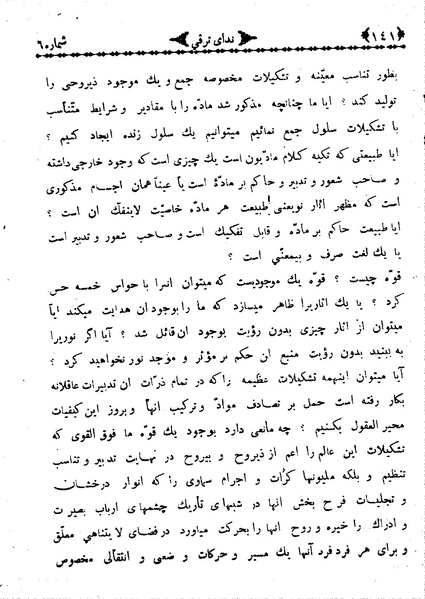 ﴿۱٤۱﴾ ندای ترقی شماره ٦
بطور تناسب معیّنه و تشکیلات مخصوصه جمع و یك موجود ذیروحی را
تولید کند ؟ ایا ما چنانچه مذکور شد مادّه را با مقادیر و شرایط متناسب
با تشکیلات سلول جمع نمائیم میتوانیم یك سلول زنده ایجاد کنیم ؟
ایا طبیعتی که تکیه کلام مادّیون است یك چیزی است که وجود خارجی داشته
و صاحب شعور و تدبیر و حاکم بر مادّهٔ است یا عیناً همان اجسام مذکوری
است که مظهر اثار نوبعنی طبیعت هر مادّه خاصیّت لاینفك ان است ؟
ایا طبیعت حاکم بر مادّه و قابل تفکیك است و صاحب شعور و تدبیر است
یا یك لغت صرف و بیمعنّی است ؟
قوّه چیست ؟ قوّه یك موجودیست که میتوان انرا با حواس خمسه حس
کرد ؟ یا یك اثاریرا ظاهر میسازد که ما را بوجود ان هدایت میکند ایا
میتوان از اثار چیزی بدون رؤیت بوجود ان قائل شد ؟ آیا اگر نوریرا
به ببنید بدون رؤیت منبع ان حکم بر مؤثر و موجد نور نخواهید کرد ؟
آیا میتوان اینهمه تشکیلات عظیمه را که در تمام ذرّات ان تدبیرات عاقلانه
بکار رفته است حمل بر تصادف موادّ و ترکیب انها و بروز این کیفیات
محیر العقول بکنیم ؟ چه مانعی دارد بوجود یك قوّه ما فوق القوی که
تشکیلات این عالم را اعم از ذیروح و بیروح در نهایت تدبیر و تناسب
تنظیم و بلکه ملیونها کرّات و اجرام سماوی را که انوار درخشان
و تجلیات فرح بخش انها در شبهای تاریك چشمهای ارباب بصیرت
و ادراك را خیره و روح انها را بحرکت میاورد در فضای لایتناهی معلّق
و برای هر فرد فرد آنها یك مسیر و حرکات و ضعی و انتقالی مخصوص